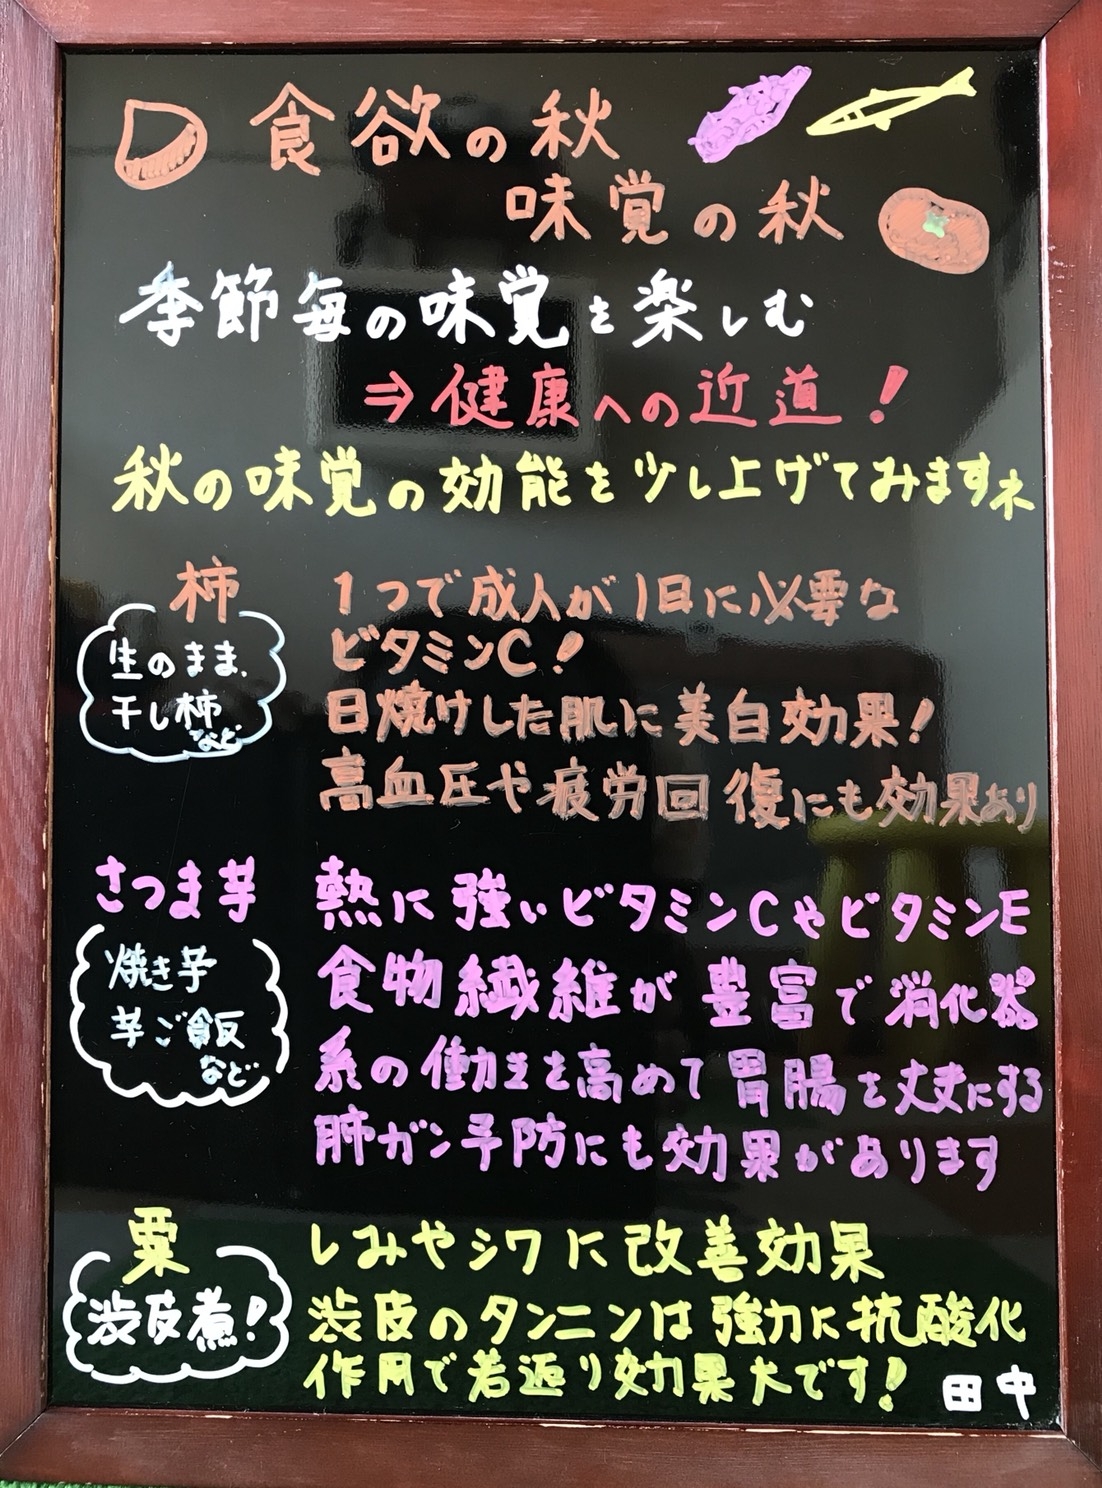 食欲の秋
味覚の秋
季節毎の味覚を楽しむ
⇒健康への近道!
秋の味覚の効能を少し上げてみますネ
柿
生のまま、
干し柿
など
1つで成人が1日に必要な
ビタミンC!
日焼けした肌に美白効果!
高血圧や疲労回復にも効果あり
さつま芋
焼き芋
芋ご飯
など
熱に強いビタミンCやビタミンE
食物繊維が豊富で消化器
系の働きを高めて胃腸を丈夫にする
肺ガン予防にも効果があります
栗
渋皮煮!
しみやシワに改善効果
渋皮のタンニンは強力に抗酸化
作用で若返り効果大です!
田中